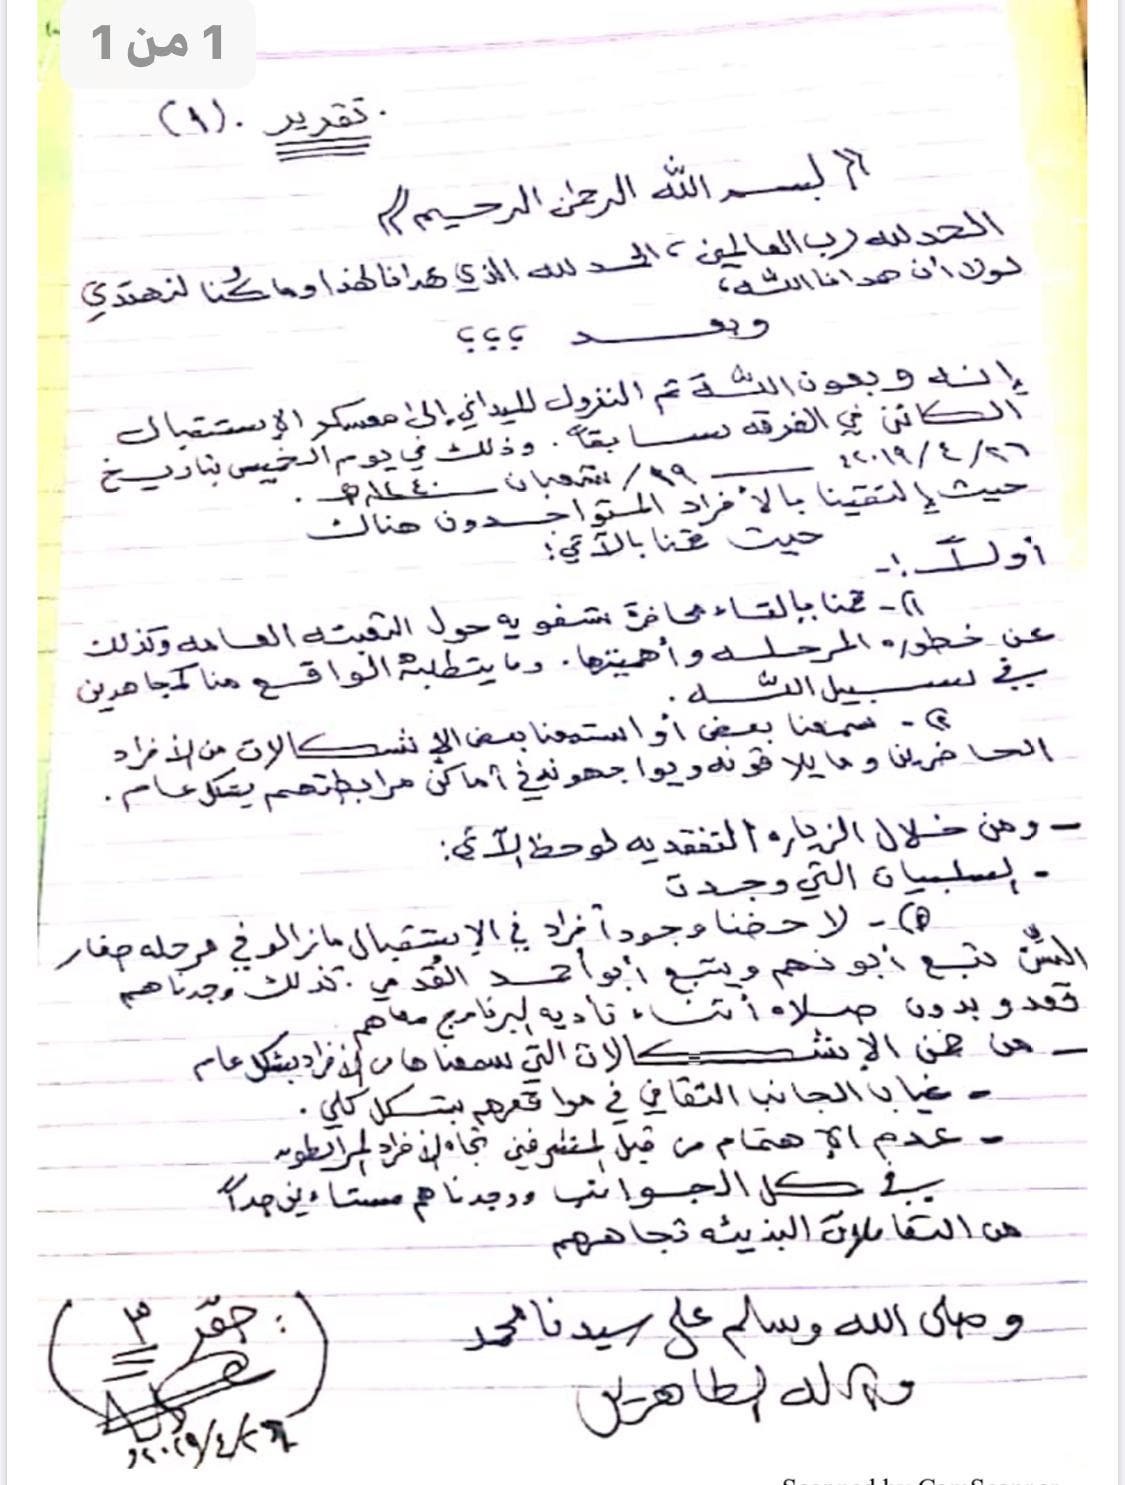 1 من 1
تقرير . (١)
بسم الله الرحمن الرحيم
الحمد لله رب العالمين ، الحمد لله الذي هدانا لهذا وما كُنا لنهتدي
لولا أن هدانا الله ،
وبعد ؟؟؟
إنه وبعون الله تم النزول الميداني إلى معسكر الإستقبال
الكائن في الفرقه سابقاً . وذلك في يوم الخميس بتاريخ
٢٠١٩/٤/٢٦م ــ ١٩/ شعبان ــ ١٤٤٠هـ .
حيث إلتقينا بالأفراد المتواجدون هناك
حيث قمنا بالآتي :
أولاً :-
١- قمنا بإلقاء محاضرة شفويه حول التعبئه العامه وكذلك
عن خطوره المرحله وأهميتها . وما يتطلبهُ الواقع منا كمجاهدين
في سبيل الله .
٢- سمعنا بعض أو استمعنا بعض الإشكالات من الأفراد
الحاضرين وما يلاقونه ويواجهونه في أماكن مرابطتهم بشكل عام .
- ومن خلال الزياره التفقديه لوحظ الآتي :
- السلبيات التي وجدت
- لاحضنا وجود أفراد في الإستقبال مازالو في مرحله صغار
السِّن تبع أبو نهم ويتبع أبو أحمد القُدمي . كذلك وجدناهم
قعدو بدون صلاه أثناء تاديه البرنامج معاهم
- من ضمن الإشكالات التي سمعناها من الأفراد بشكل عام
- غياب الجانب الثقافي في مواقعهم بشكل كلي .
- عدم الإهتمام من قبل المشرفين تجاه الأفراد المرابطون
في كل الجوانب ووجدناهم مستاءين جداً
من التعاملات البذيئه تجاههم
وصلى الله وسلم على سيدنا محمد
وآله الطاهرين
٢٠١٩/٤/٢٦م
Scanned by CamScanner